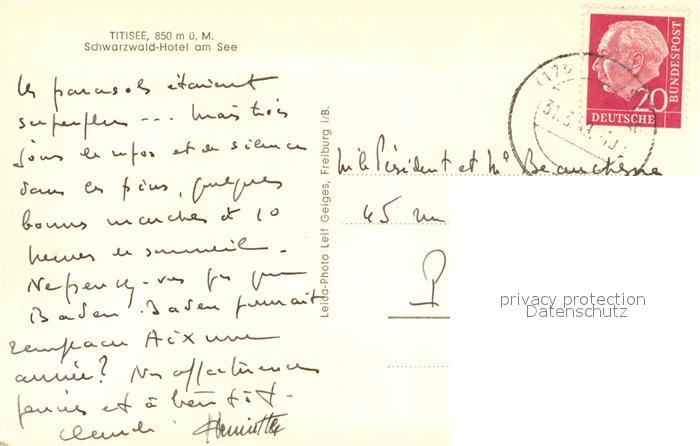 TITISEE, 850 m ü. M.
Schwarzwald-Hotel am See
Les parasols étaient
superflus --- Mais trois
jours de repos et de silence
dans les pins, quelques
bonnes marches et 10
heures de sommeil.
Ne pensez-vous pas que
Baden-Baden pourrait
remplacer Aix une
année? Nos affectueuses
pensées et à bientôt.
Claude Henriette
Leida-Photo Leif Geiges, Freiburg i/B.
DEUTSCHE
BUNDESPOST
20
M. le Président et Me Beauchesne
45 rue
P
privacy protection
Datenschutz